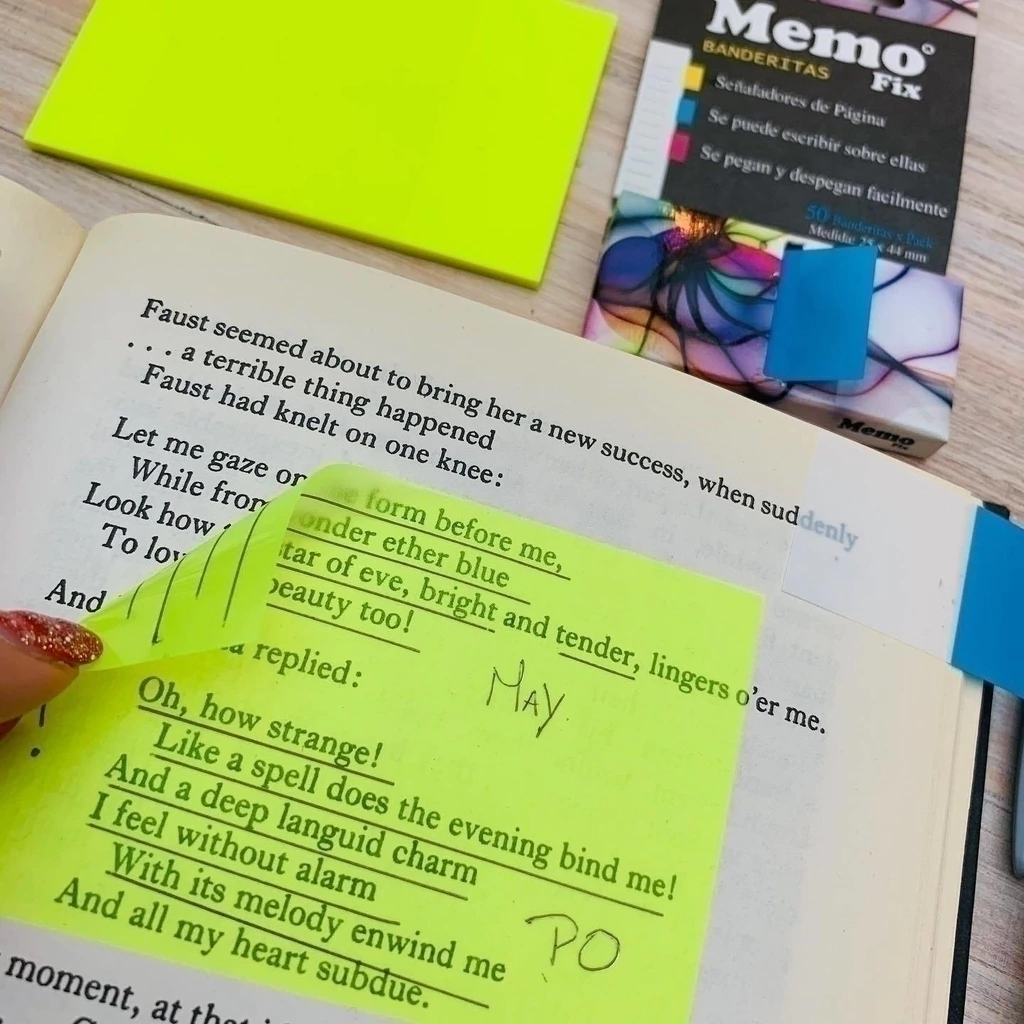 Memo
Fix
BANDERITAS
Señaladores de Página
Se puede escribir sobre ellas
Se pegan y despegan facilmente
50 Banderitas x Pack
Medida: 25 x 44 mm
Memo
Fix
Faust seemed about to bring her a new success, when suddenly
. . . a terrible thing happened
Faust had knelt on one knee:
Let me gaze on form before me,
While from yonder ether blue
Look how star of eve, bright and tender, lingers o'er me.
To beauty too!
And replied:
MAY
Oh, how strange!
Like a spell does the evening bind me!
And a deep languid charm
I feel without alarm
With its melody enwind me
And all my heart subdue.
PO
moment, at that